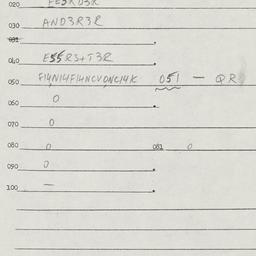 020 FE5R03R
030 AND3R3R
031
040 E55R3+T3R
050 F14N14F14NCVONC14K 051 — QR
060 0
070 0
080 0 081 0
090 0
100 —